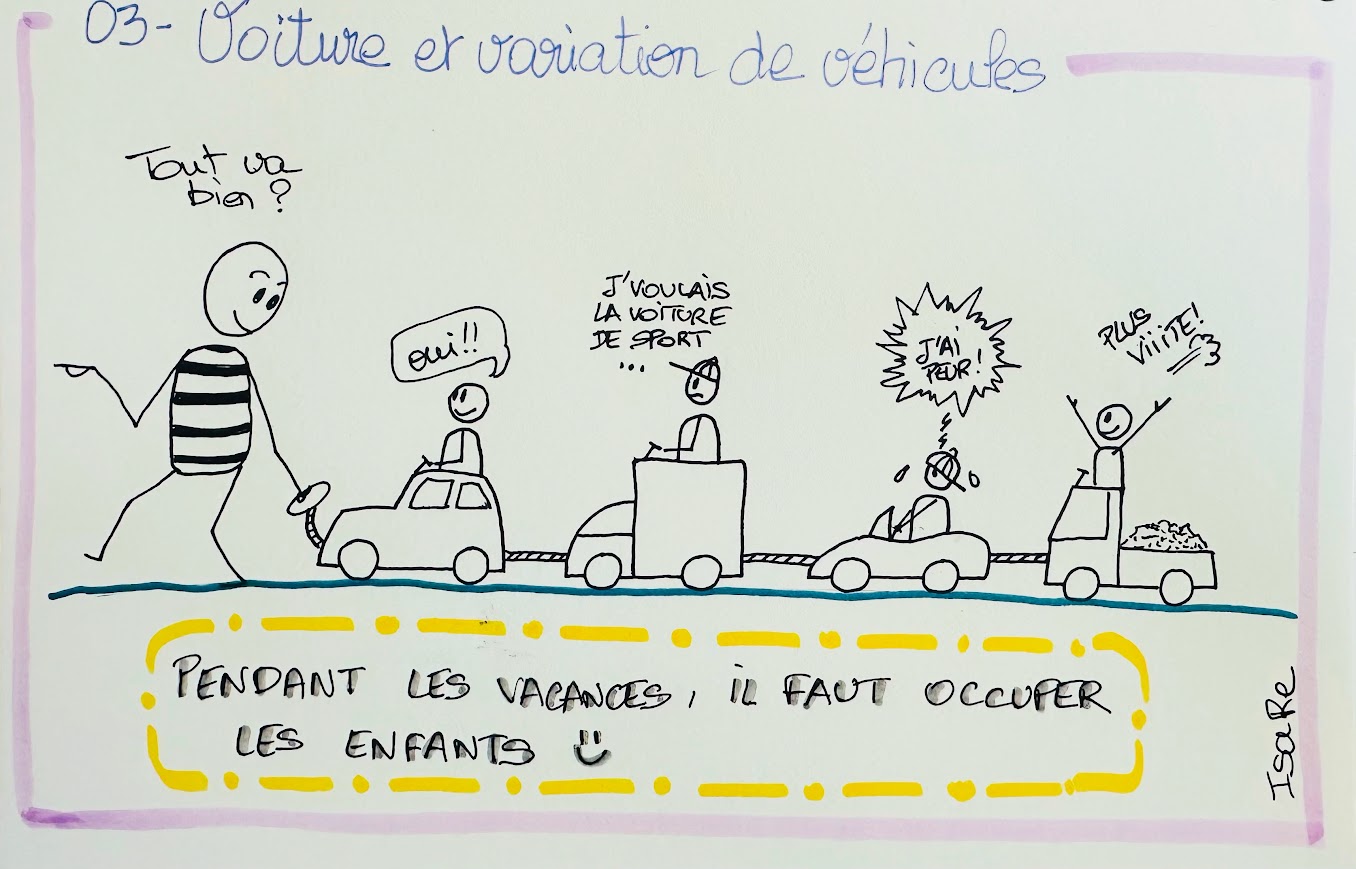 03- Voiture et variation de véhicules
Tout va
bien ?
oui!!
J'VOULAIS
LA VOITURE
DE SPORT
...
J'AI
PEUR!
PLUS
VIIITE!
PENDANT LES VACANCES, IL FAUT OCCUPER
LES ENFANTS
IsaRe